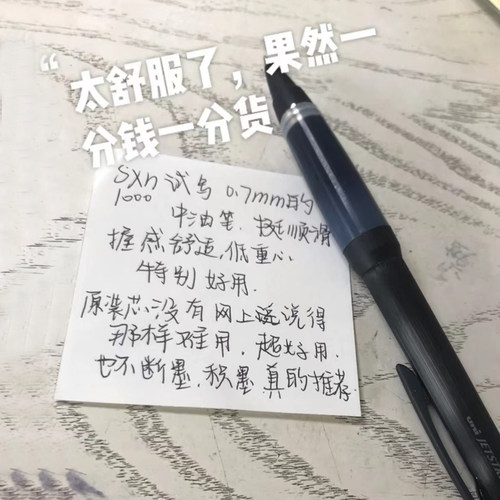 “太舒服了，果然一
分钱一分货
SXn 试写 0.7mm的
1000
中油笔，挺顺滑
握感舒适,低重心
特别好用.
原装芯没有网上说说得
那样难用，超好用.
也不断墨,积墨真的推荐.
uni JETST